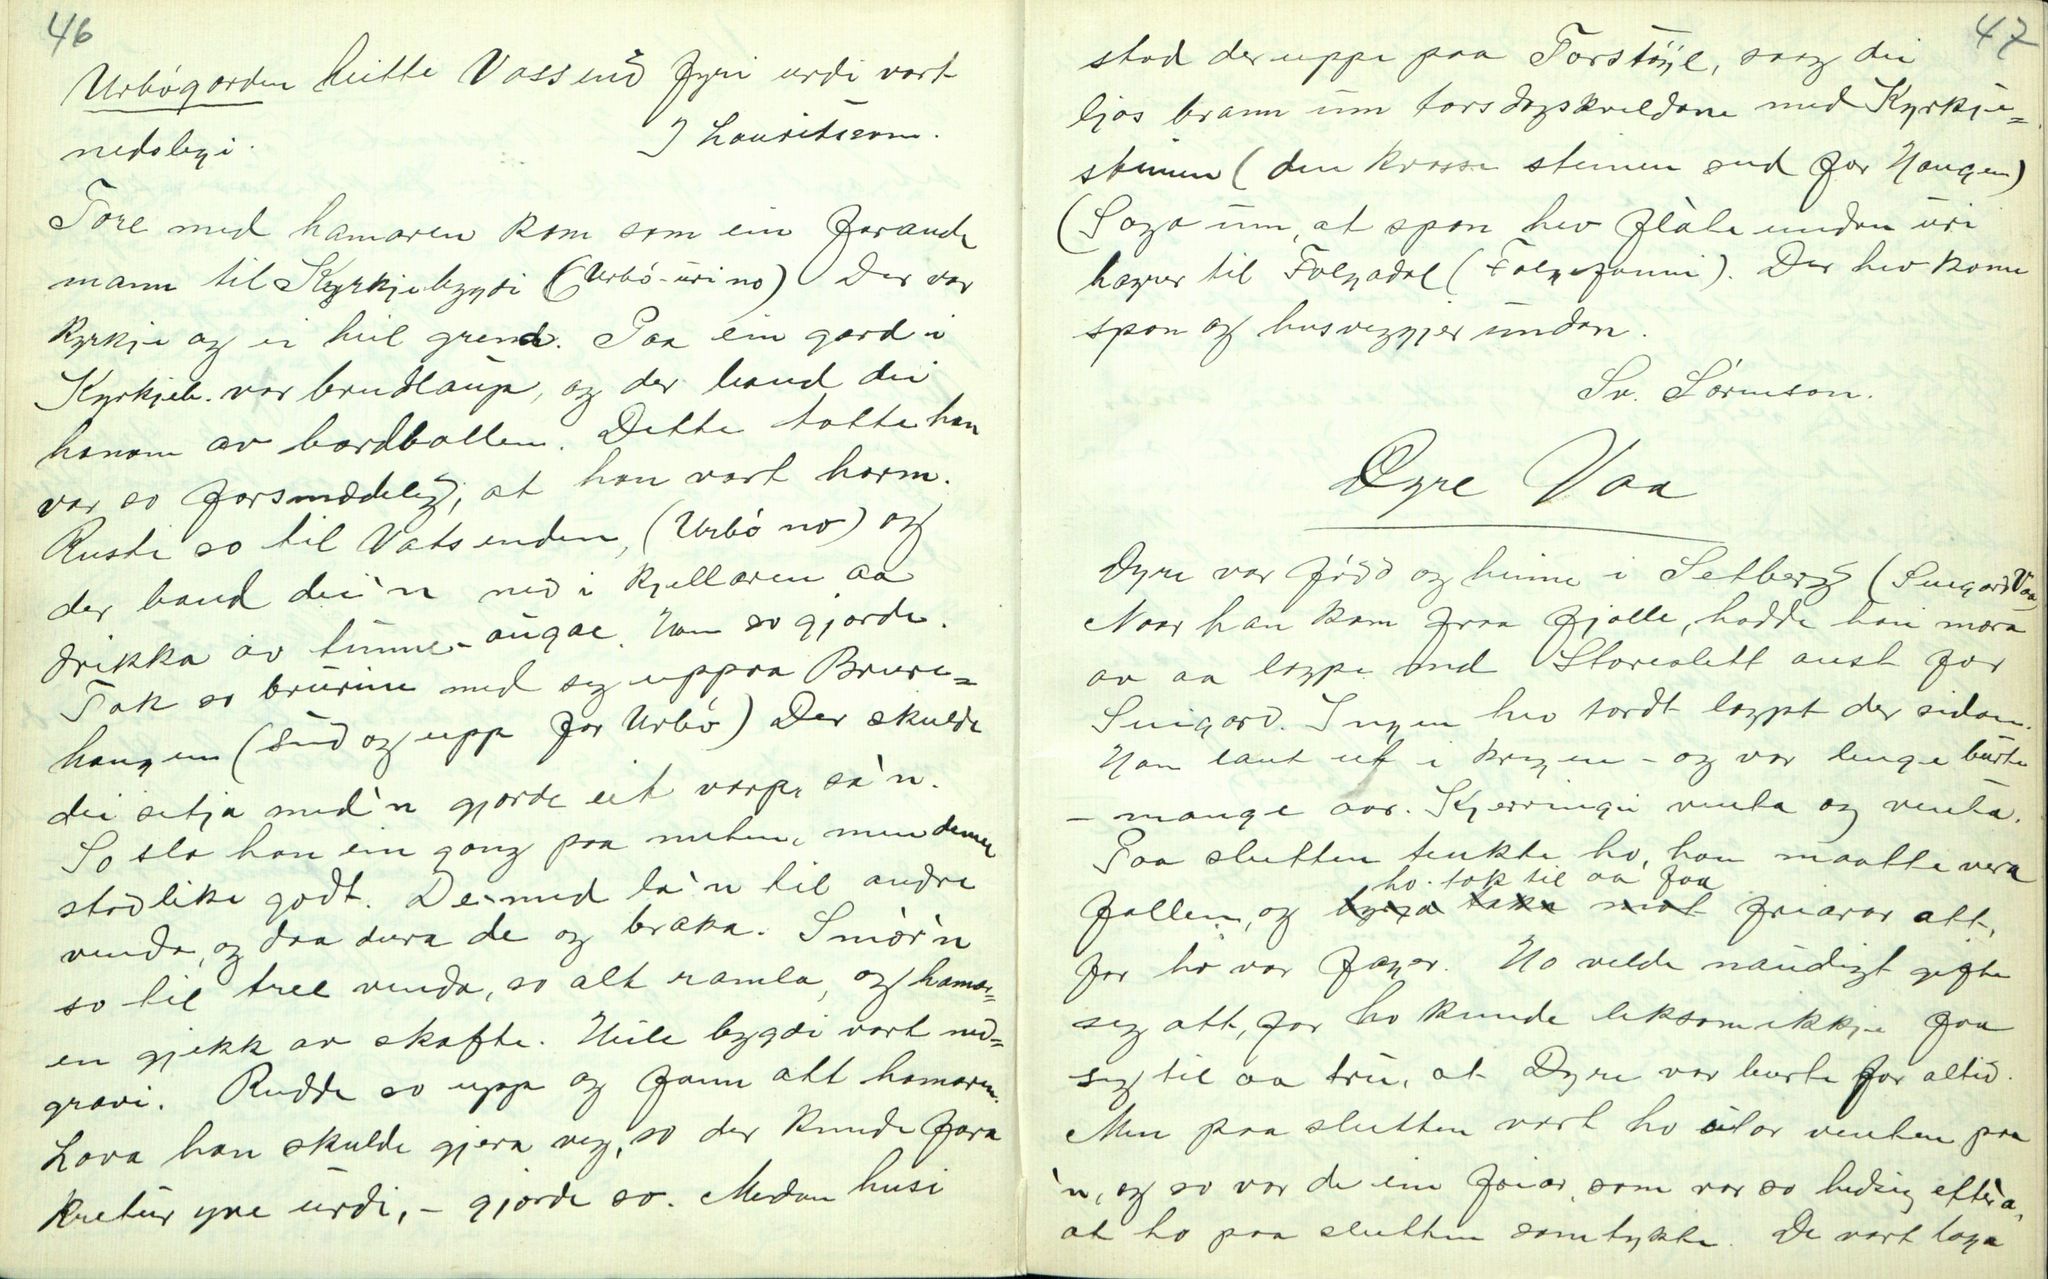 46
Urbógarden heitte Vassend fyri urdi vart
nedslegi.
J Lauritsson.
Tore med hamaren kom som ein farande
mann til Kyrkjebygdi (Urbó-uri no) Der var
kyrkje og ei heil grend. Paa ein gard i
Kyrkjeb. var brudlaup, og der baud dei
honom av bordbollen. Dette totte han
var so forsmædeleg, at han vart harm.
Reiste so til Vatsenden, (Urbó no) og
der baud dei'n ned i kjellaren aa
drikka av tunne-augae. Han so gjorde.
Tok so brurine med seg uppaa Brure-
haugen (sud og upp for Urbó) Der skulde
dei sitja med'n gjorde eit varp, sa'n.
So slo han ein gong paa nuten, men denne
stod like godt. De med la'n til andre
venda, og daa dura de og braka. Smór'n
so til tree venda, so alt ramla, og hamar-
en gjekk av skafte. Heile bygdi vart ned-
gravi. Rudde so upp og fann att hamaren.
Lova han skulde gjera veg, so der kunde fara
kretur yve urdi, – gjorde so. Medan husi
47
stod der uppe paa Torstóyl, saag dei
ljos brann um torsdagskveldane med Kyrkje-
steinen (den krosse steinen sud for Haugen)
(Soga um, at spon hev flote undan uri
hagver til Folgadal (Folgefonni). Der hev kome
spon og husveggjer undan.
Sv. Sórenson.
Dyre Vaa
Dyre var fódd og heime i Setberg (Suigard Vaa)
Naar han kom fraa fjølle, hadde han mæra
av aa loype ned Storeslett aust for
Suigard. Ingen hev tordt loypt der sidan.
Han laut ut i krigen – og var lenge burte
– mange aar. Kjerringi venta og venta.
Paa slutten tenkte ho, han maatte vera
fallen, og ho tok til aa faa friarar att,
for ho var fager. Ho velde naudigt gifte
seg att, for ho kunde liksom ikkje faa
seg til aa tru, at Dyre var burte for altid.
Men paa slutten vart ho utor venten paa
'n, og so var de ein friar, som var so hedsig ette'a,
at ho paa slutten samtykte. De vart laga